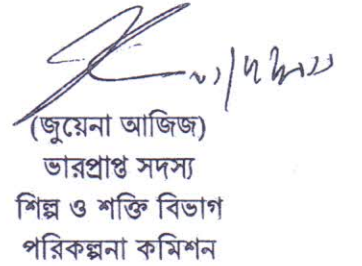 (জুয়েনা আজিজ)
ভারপ্রাপ্ত সদস্য
শিল্প ও শক্তি বিভাগ
পরিকল্পনা কমিশন